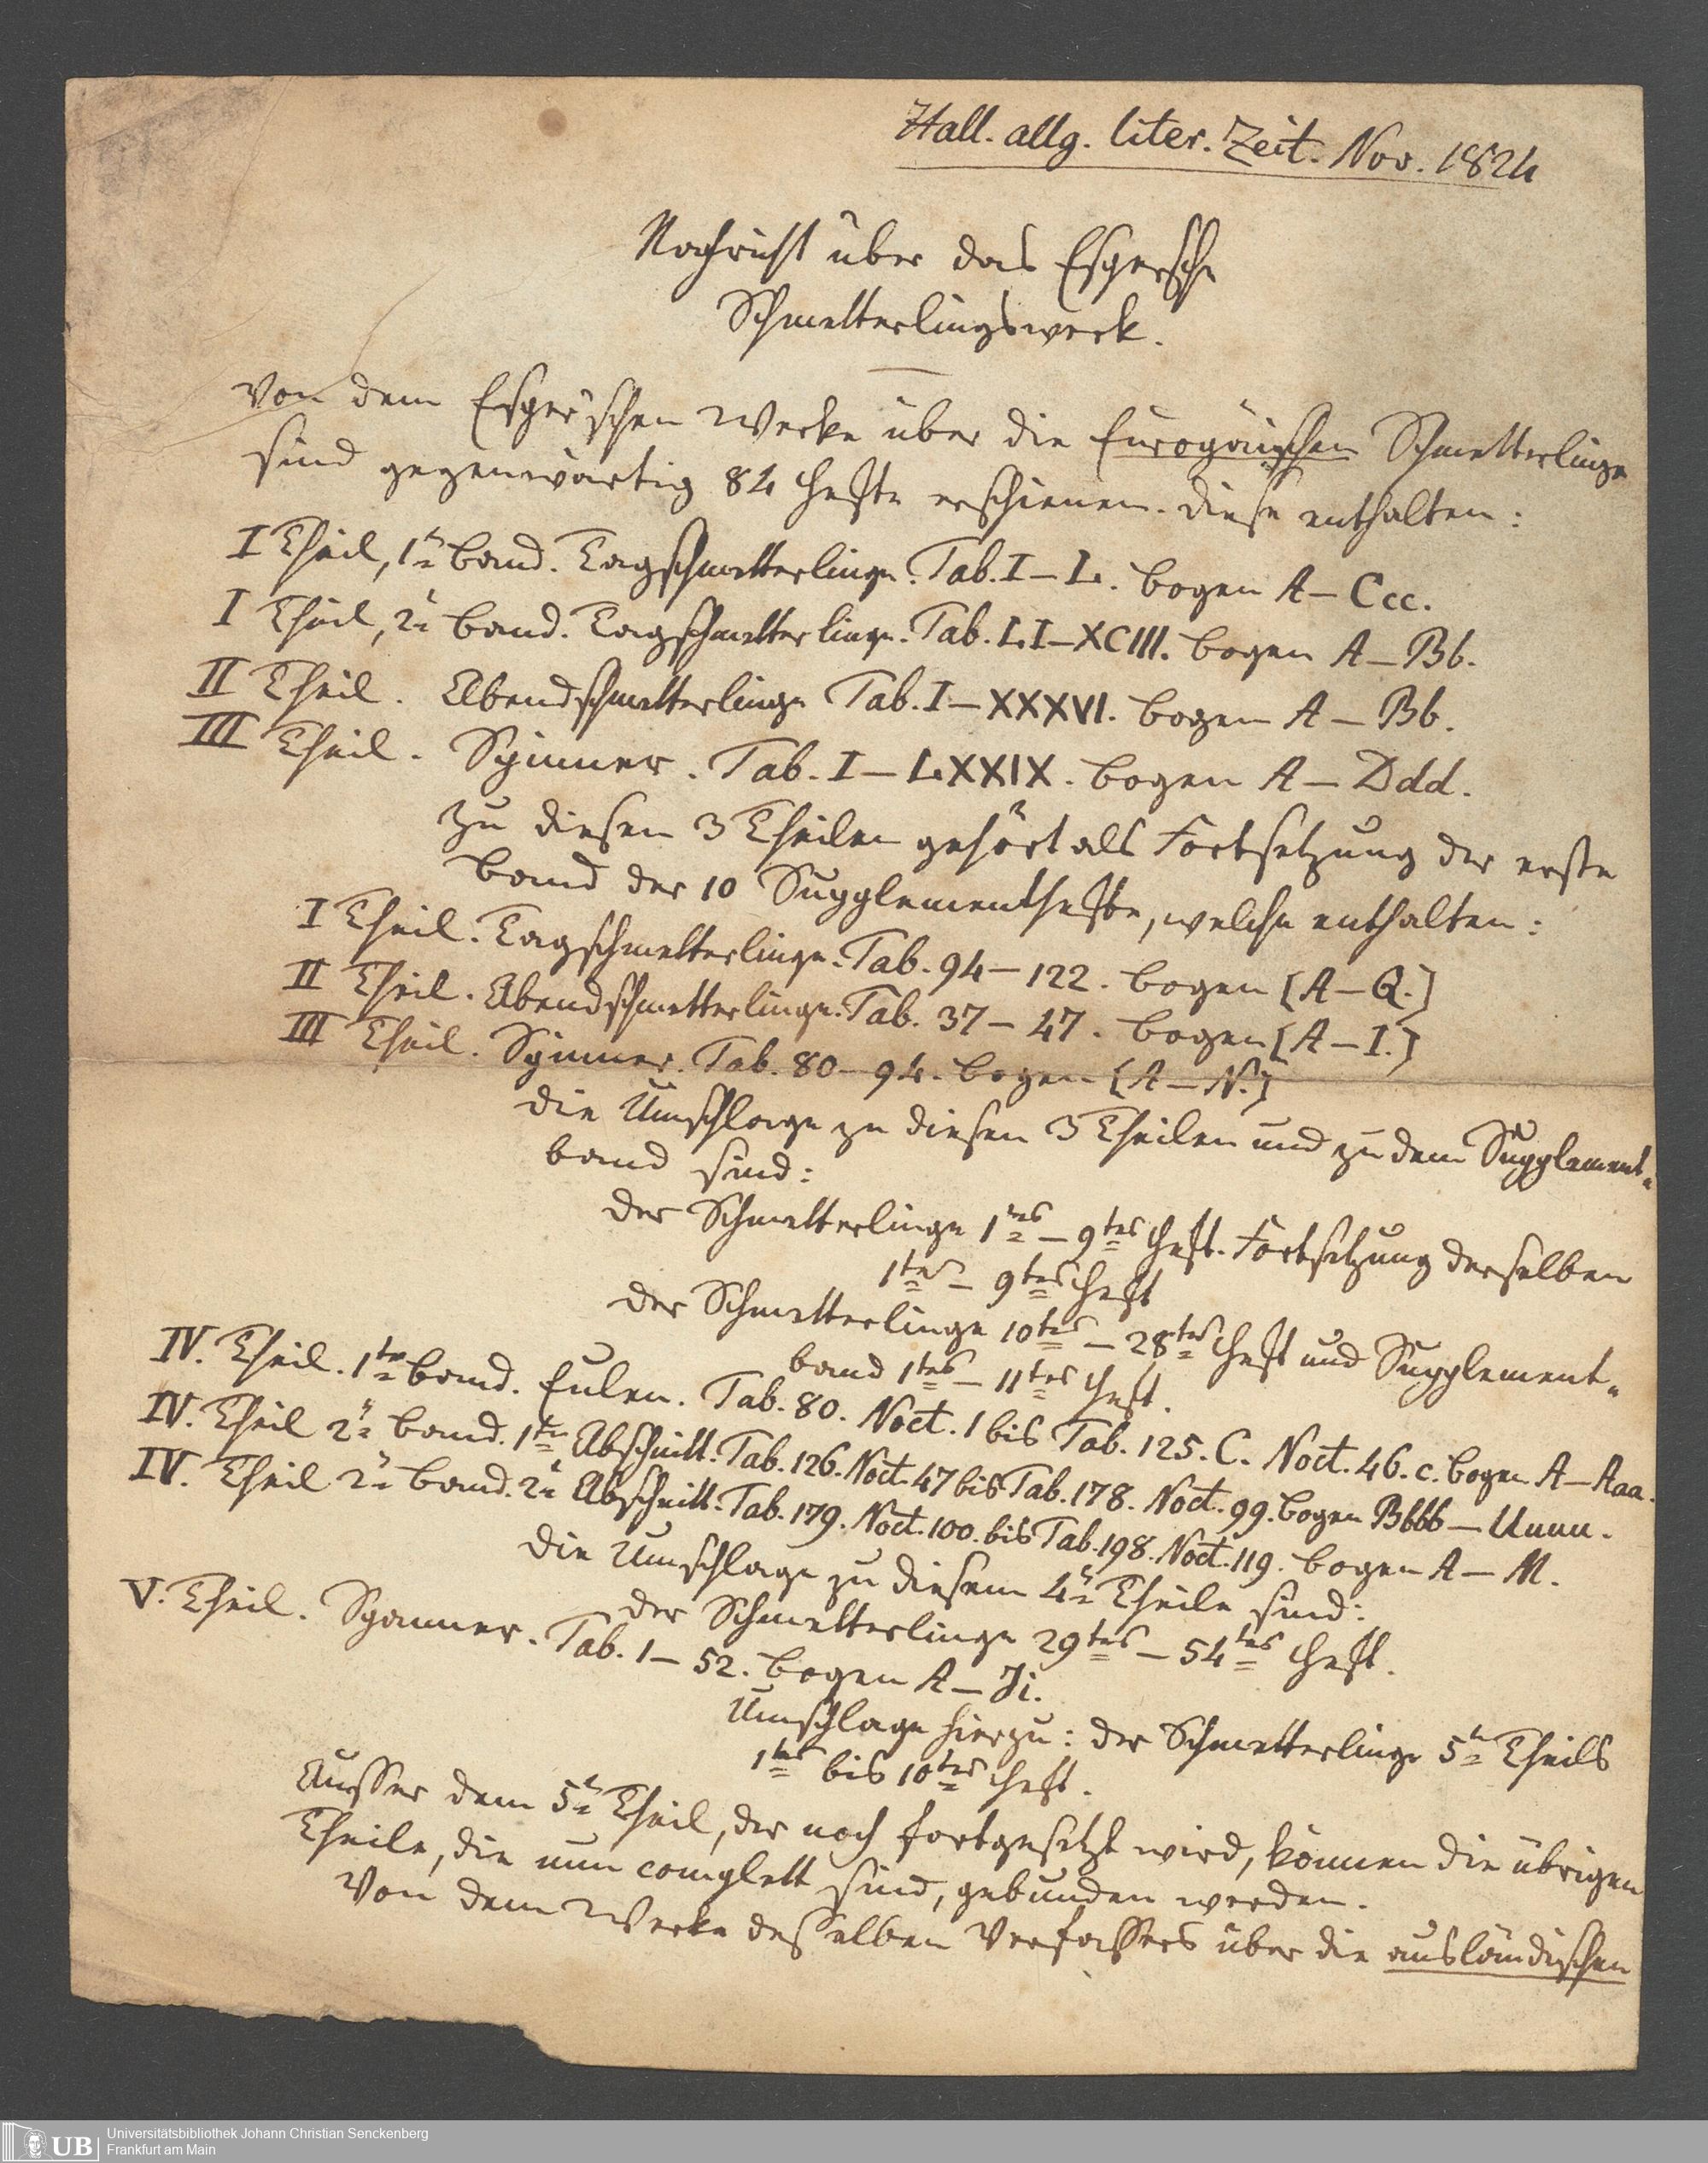 Hall. allg. liter. Zeit. Nov. 1824
Nachricht über das Espersche
Schmetterlingswerk.
Von dem Esper'schen Werke über die Europäischen Schmetterlinge
sind gegenwärtig 84 Hefte erschienen. Diese enthalten:
I Theil, 1r Band. Tagschmetterlinge. Tab. I – L. Bogen A – Ccc.
I Theil, 2r Band. Tagschmetterlinge. Tab. LI – XCIII. Bogen A – Bb.
II Theil. Abendschmetterlinge Tab. I – XXXVI. Bogen A – Bb.
III Theil. Spinner. Tab. I – LXXIX. Bogen A – Ddd.
Zu diesen 3 Theilen gehört als Fortsetzung der erste
Band der 10 Supplementhefte, welche enthalten:
I Theil. Tagschmetterlinge. Tab. 94 – 122. Bogen [A – Q.]
II Theil. Abendschmetterlinge. Tab. 37 – 47. Bogen [A – I.]
III Theil. Spinner. Tab. 80 – 94. Bogen [A – N.]
Die Umschläge zu diesen 3 Theilen und zu dem Supplement-
band sind:
Der Schmetterlinge 1tes – 9tes Heft. Fortsetzung derselben
1tes – 9tes Heft
Der Schmetterlinge 10tes – 28tes Heft und Supplement-
band 1tes – 11tes Heft.
IV. Theil. 1ter Band. Eulen. Tab. 80. Noct. 1 bis Tab. 125. C. Noct. 46. c. Bogen A – Aaa.
IV. Theil 2r Band. 1ter Abschnitt. Tab. 126. Noct. 47 bis Tab. 178. Noct. 99. Bogen Bbbb – Uuuu.
IV. Theil 2r Band. 2r Abschnitt. Tab. 179. Noct. 100. bis Tab. 198. Noct. 119. Bogen A – M.
Die Umschläge zu diesem 4n Theile sind:
Der Schmetterlinge 29tes – 54tes Heft.
V. Theil. Spanner. Tab. 1 – 52. Bogen A – Ji.
Umschläge hierzu: Der Schmetterlinge 5n Theils
1tes bis 10tes Heft.
Ausser dem 5n Theil, der noch fortgesetzt wird, können die übrigen
Theile, die nun complett sind, gebunden werden.
Von dem Werke desselben Verfassers über die ausländischen
UB
Universitätsbibliothek Johann Christian Senckenberg
Frankfurt am Main